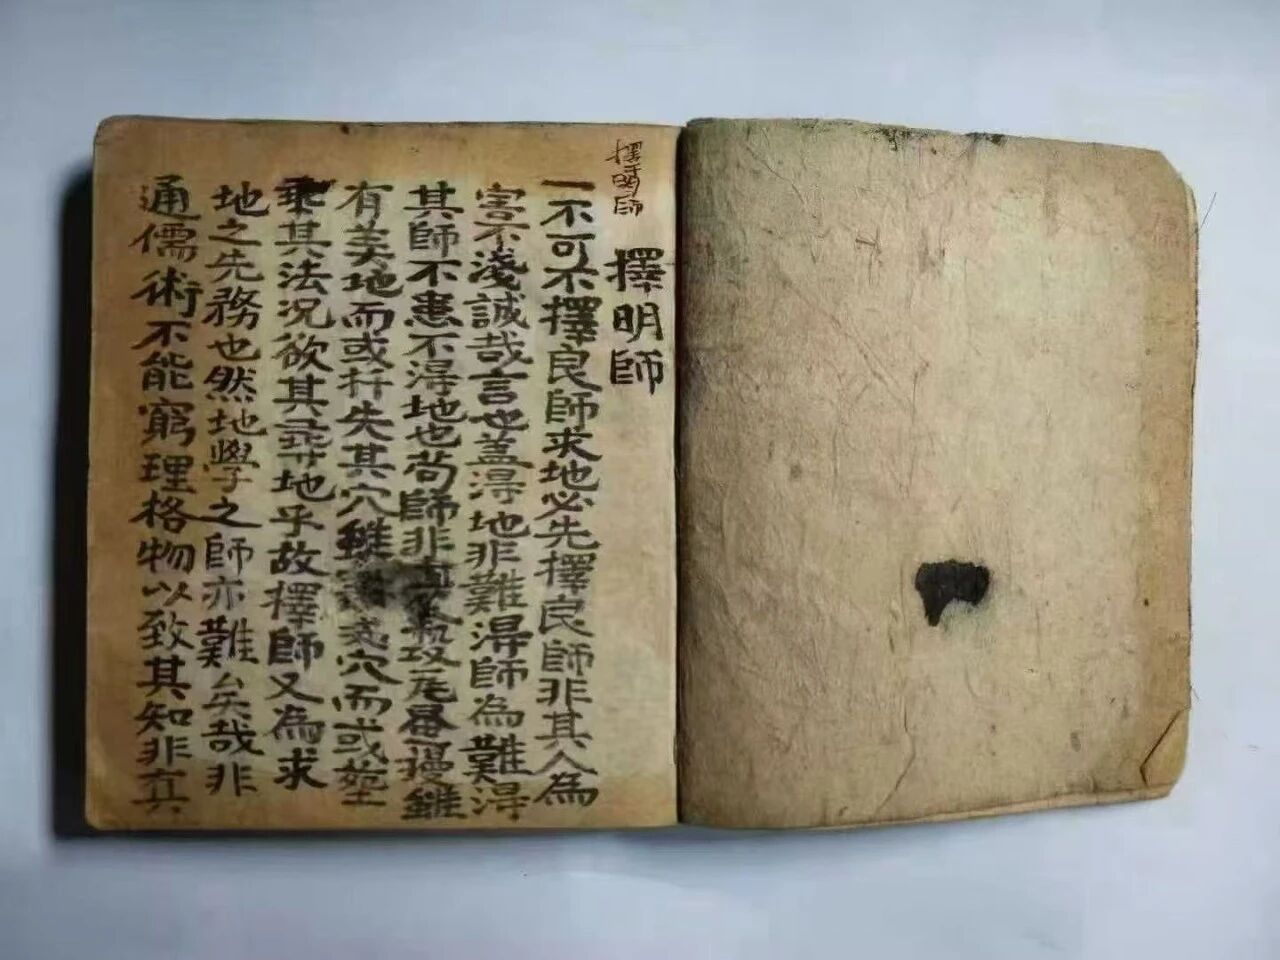 擇明師
擇明師
一不可不擇良師求地必先擇良師非其人為
害不淺誠哉言也盖淂地非難淂師為難淂
其師不患不淂地也苟師非真玫尾暴謾雖
有美地而或扦失其穴雖穴而或塟
乘其法况欲其尋地乎故擇師又為求
地之先務也然地學之師亦難矣哉非
通儒術不能窮理格物以致其知非真